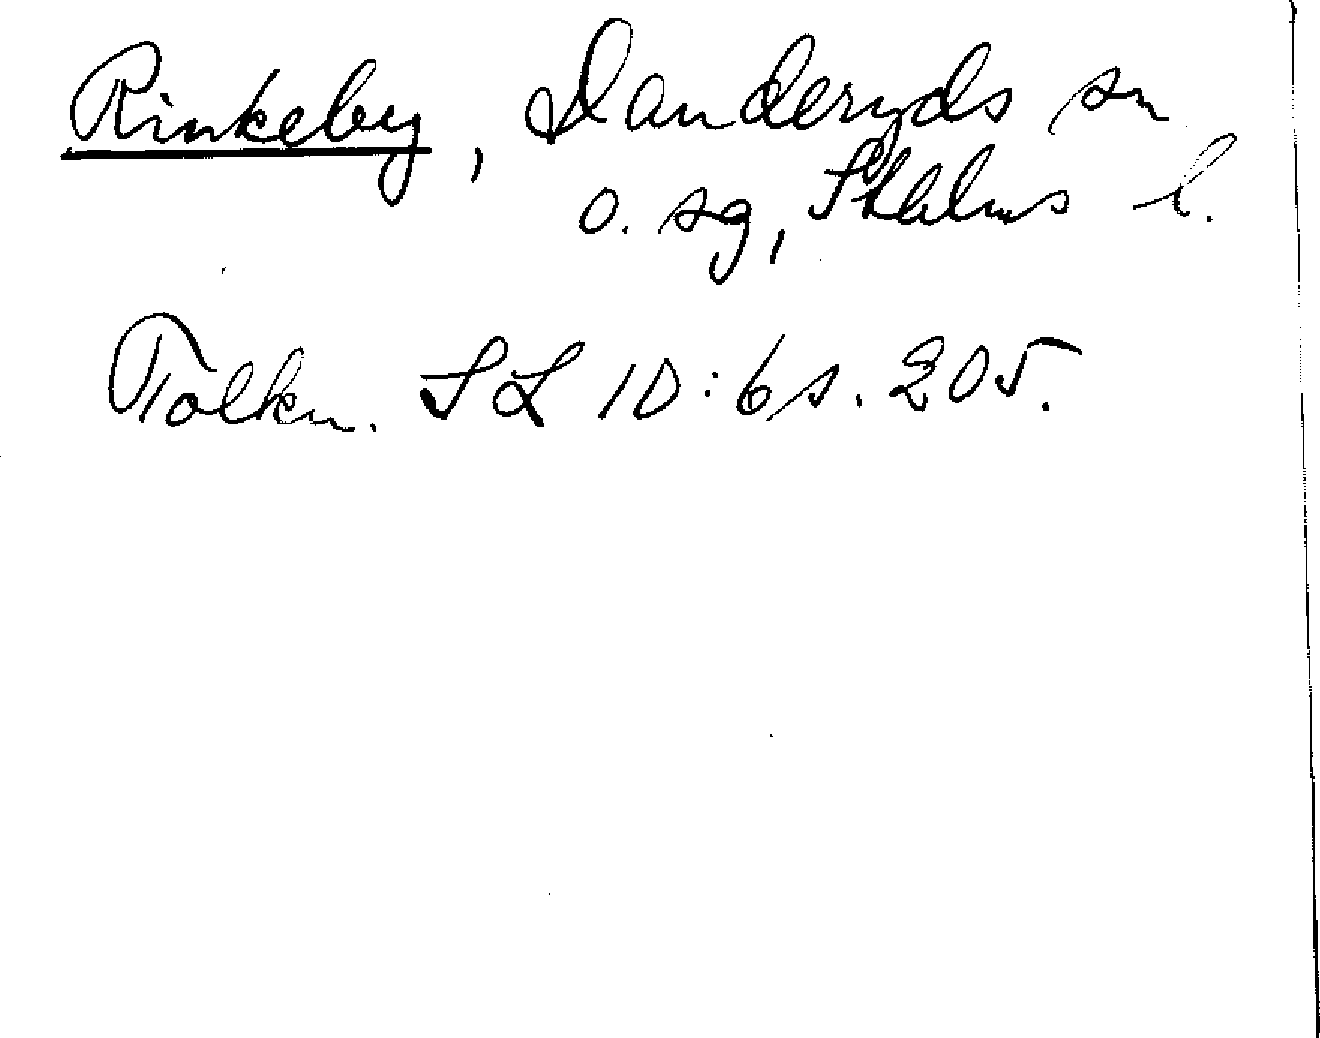 Rinkeby, Danderyds sn
o. sg, Sthlms l.
Tolkn. SL 10:6 s. 205.